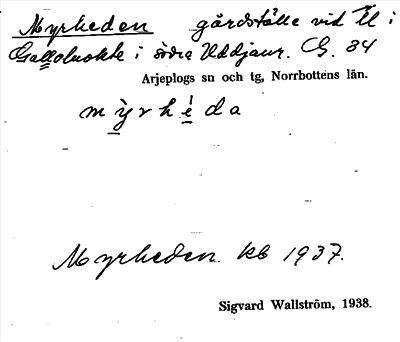 Myrheden gårdställe vid Tl i
Galloluokte i södra Uddjaur. G. 84
Arjeplogs sn och tg, Norrbottens län.
mỳrhèda
Myrheden. kb 1937.
Sigvard Wallström, 1938.